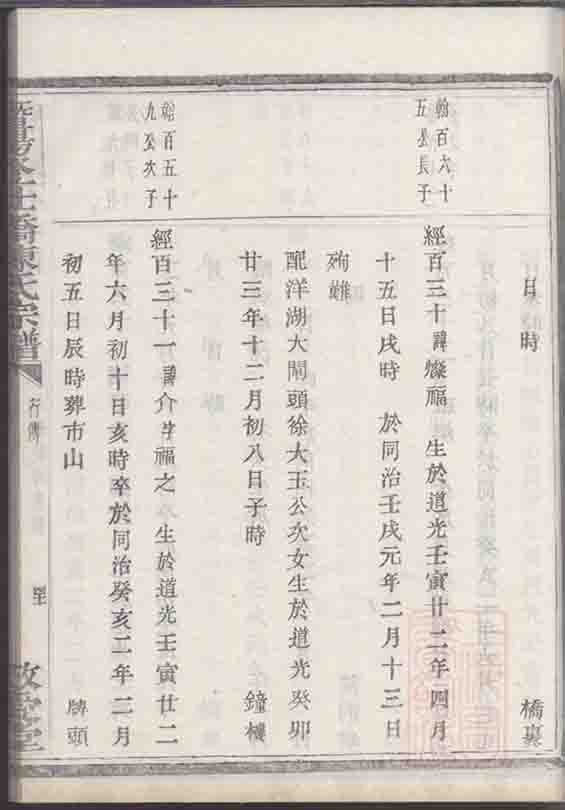 日時
橋裏
翰百六十
五公長子
經百三十諱燦福 生於道光壬寅廿二年四月
十五日戌時 於同治壬戌元年二月十三日
殉難
配洋湖大閘頭徐大玉公次女生於道光癸卯
廿三年十二月初八日子時
鐘樓
翰百五十
九公次子
經百三十一諱介孚福之 生於道光壬寅廿二
年六月初十日亥時卒於同治癸亥二年二月
初五日辰時葬市山
牌頭
橋陳氏宗譜
行傳